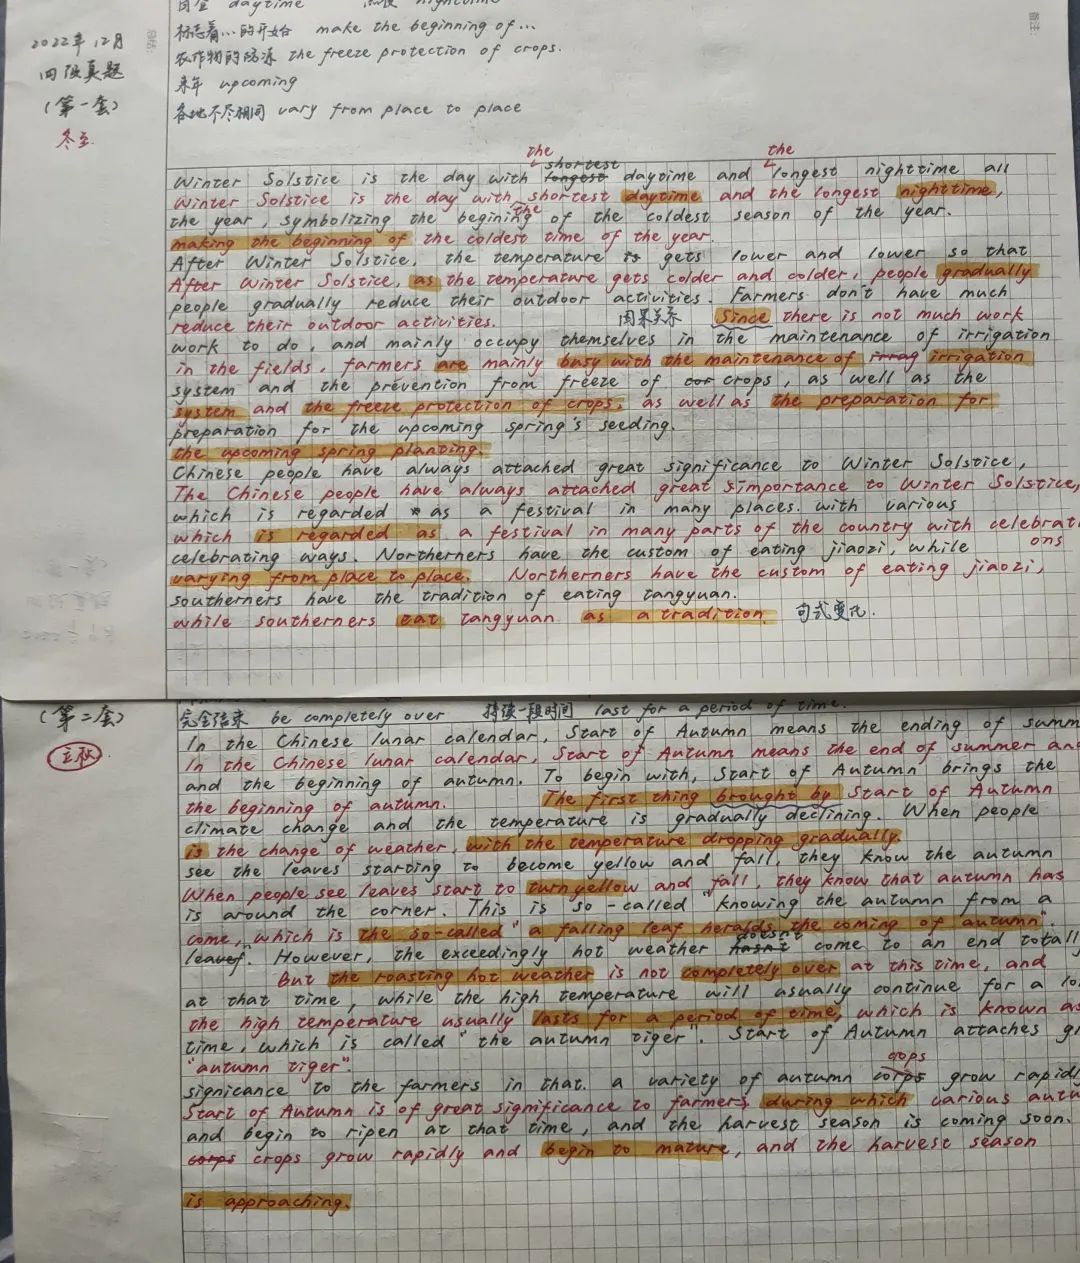 daytime nighttime
2022年12月
四级真题
(第一套)
冬至
标志着…的开始 make the beginning of…
农作物的防冻 the freeze protection of crops.
来年 upcoming
各地不尽相同 vary from place to place
备注:
the the
shortest
Winter Solstice is the day with longest daytime and longest nighttime all
Winter Solstice is the day with shortest daytime and the longest nighttime,
the
the year, symbolizing the begining of the coldest season of the year.
making the beginning of the coldest time of the year.
After Winter Solstice, the temperature is gets lower and lower so that
After Winter Solstice, as the temperature gets colder and colder, people gradually
people gradually reduce their outdoor activities. Farmers don't have much
reduce their outdoor activities. 因果关系 Since there is not much work
work to do, and mainly occupy themselves in the maintenance of irrigation
in the fields, farmers are mainly busy with the maintenance of irrag irrigation
system and the prevention from freeze of cor crops, as well as the
system and the freeze protection of crops, as well as the preparation for
preparation for the upcoming spring's seeding.
the upcoming spring planting.
Chinese people have always attached great significance to Winter Solstice,
The Chinese people have always attached great simportance to Winter Solstice,
which is regarded as a festival in many places. with various
which is regarded as a festival in many parts of the country with celebrati
ons
celebrating ways. Northerners have the custom of eating jiaozi, while
varying from place to place. Northerners have the custom of eating jiaozi,
southerners have the tradition of eating tangyuan.
while southerners eat tangyuan as a tradition. 句式变化.
(第二套)
立秋
完全结束 be completely over 持续一段时间 last for a period of time.
In the Chinese lunar calendar, Start of Autumn means the ending of summ
In the Chinese lunar calendar, Start of Autumn means the end of summer and
and the beginning of autumn. To begin with, Start of Autumn brings the
the beginning of autumn. The first thing brought by Start of Autumn
climate change and the temperature is gradually declining. When people
is the change of weather, with the temperature dropping gradually.
see the leaves starting to become yellow and fall, they know the autumn
When people see leaves start to turn yellow and fall, they know that autumn has
is around the corner. This is so-called "knowing the autumn from a
come, which is the so-called "a falling leaf heralds the coming of autumn".
doesn't
leaf". However, the exceedingly hot weather hasn't come to an end totall
But the roasting hot weather is not completely over at this time, and
at that time, while the high temperature will usually continue for a lo
the high temperature usually lasts for a period of time, which is known as
time, which is called "the autumn tiger". Start of Autumn attaches gr
"autumn tiger".
crops
signicance to the farmers in that. a variety of autumn corps grow rapidl
Start of Autumn is of great significance to farmers, during which various autu
and begin to ripen at that time, and the harvest season is coming soon.
corps crops grow rapidly and begin to mature, and the harvest season
is approaching.